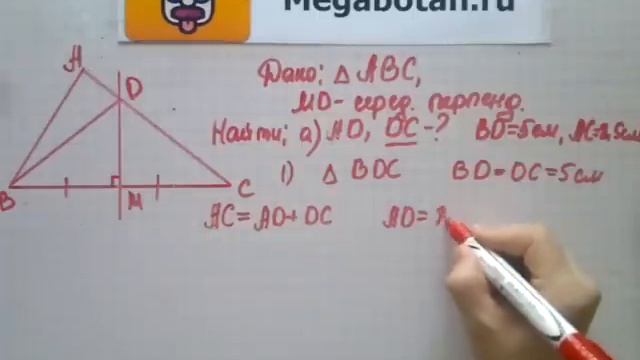 Megabotan.ru
A
D
B
M
C
Дано: △ ABC,
MD - серед. перпенд.
Найти: а) AD, DC - ? BD = 5 см, AC = 8,5 см
1) △ BDC BD = DC = 5 см
AC = AD + DC AD = A